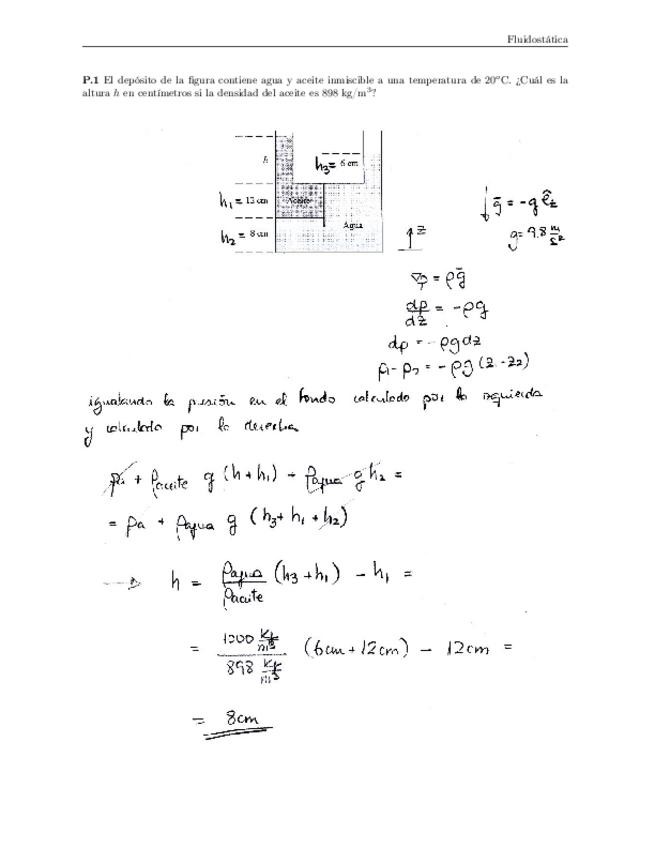 Fluidostática
P.1 El depósito de la figura contiene agua y aceite inmiscible a una temperatura de 20ºC. ¿Cuál es la
altura h en centímetros si la densidad del aceite es 898 kg/m³?
h
h₃ = 6 cm
h₁ = 12 cm
Aceite
h₂ = 8 cm
Agua
z
ḡ = -g ê_z
g = 9.8 m/s²
∇p = ρḡ
dp/dz = -ρg
dp = -ρg dz
p₁ - p₂ = -ρg (z - z₂)
igualando la presión en el fondo calculado por la izquierda
y calculada por la derecha
pa + ρaceite g (h + h₁) + ρagua g h₂ =
= pa + ρagua g (h₃ + h₁ + h₂)
→ h = ρagua/ρaceite (h₃ + h₁) - h₁ =
= 1000 kg/m³ / 898 kg/m³ (6cm + 12cm) - 12cm =
= 8cm